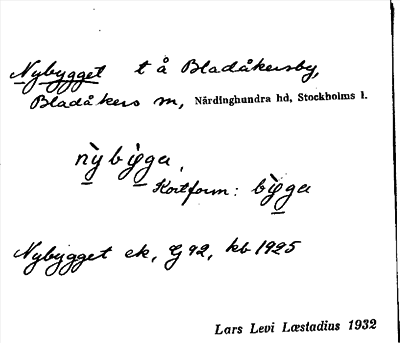 Nybygget t å Bladåkersby,
Bladåkers sn, Närdinghundra hd, Stockholms l.
nỳbỳga,
Kortform: bỳga
Nybygget ek, G 92, kb 1925
Lars Levi Læstadius 1932